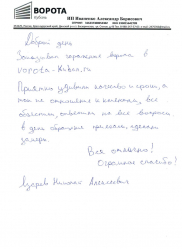 ВОРОТА
Кубани
ИП Иваненко Александр Борисович
Добрый день
Заказывал гаражные ворота в
vорота-кuban.ru
Приятно удивили качество и сроки, а
так же отношение к клиентам, все
объяснили, ответили на все вопросы
в день обращения приехали, сделали
замеры.
Все отлично!
Огромное спасибо!
Николай Алексеевич